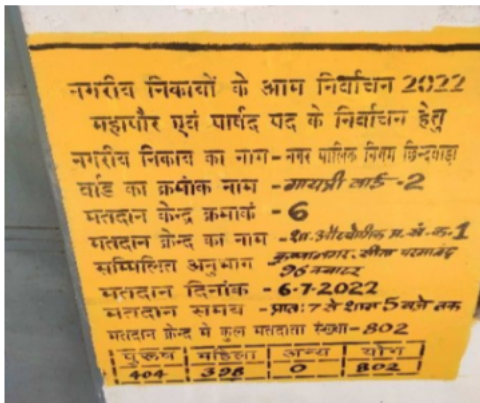 नगरीय निकायों के आम निर्वाचन 2022
महापौर एवं पार्षद पद के निर्वाचन हेतु
नगरीय निकाय का नाम - नगर पालिक निगम छिन्दवाड़ा
वार्ड का क्रमांक नाम - गायत्री वार्ड - 2
मतदान केन्द्र क्रमांक - 6
मतदान केन्द्र का नाम - शा. औद्योगिक प्र. सं. क. 1
सम्मिलित अनुभाग कृष्णानगर, सीता परमानंद
96 क्वाटर
मतदान दिनांक - 6-7-2022
मतदान समय - प्रातः 7 से शाम 5 बजे तक
मतदान केन्द्र मे कुल मतदाता संख्या - 802
पुरूष महिला अन्य योग
404 398 0 802